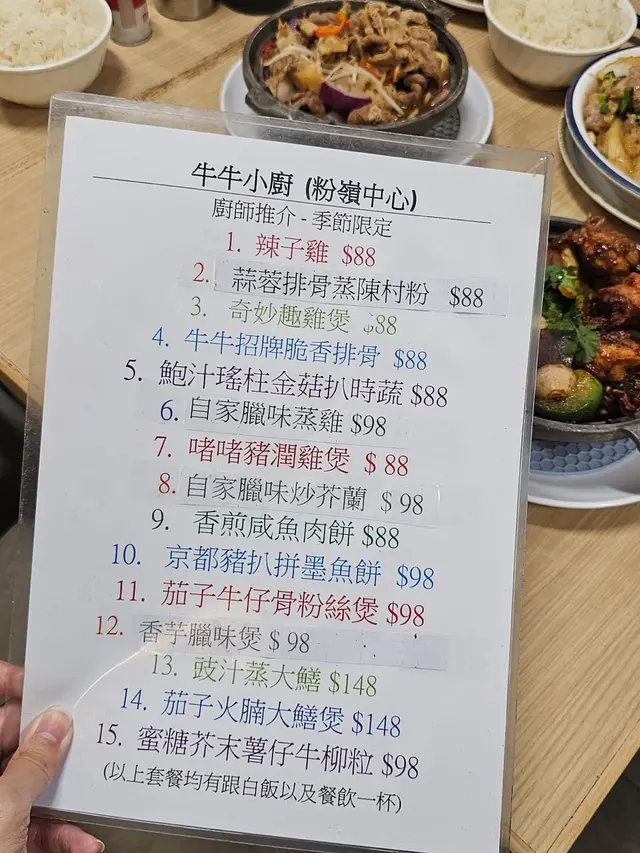 牛牛小廚 (粉嶺中心)
廚師推介 - 季節限定
1. 辣子雞 $88
2. 蒜蓉排骨蒸陳村粉 $88
3. 奇妙趣雞煲 $88
4. 牛牛招牌脆香排骨 $88
5. 鮑汁瑤柱金菇扒時蔬 $88
6. 自家臘味蒸雞 $98
7. 啫啫豬潤雞煲 $ 88
8. 自家臘味炒芥蘭 $ 98
9. 香煎咸魚肉餅 $88
10. 京都豬扒拼墨魚餅 $98
11. 茄子牛仔骨粉絲煲 $98
12. 香芋臘味煲 $ 98
13. 豉汁蒸大鱔 $148
14. 茄子火腩大鱔煲 $148
15. 蜜糖芥末薯仔牛柳粒 $98
(以上套餐均有跟白飯以及餐飲一杯)